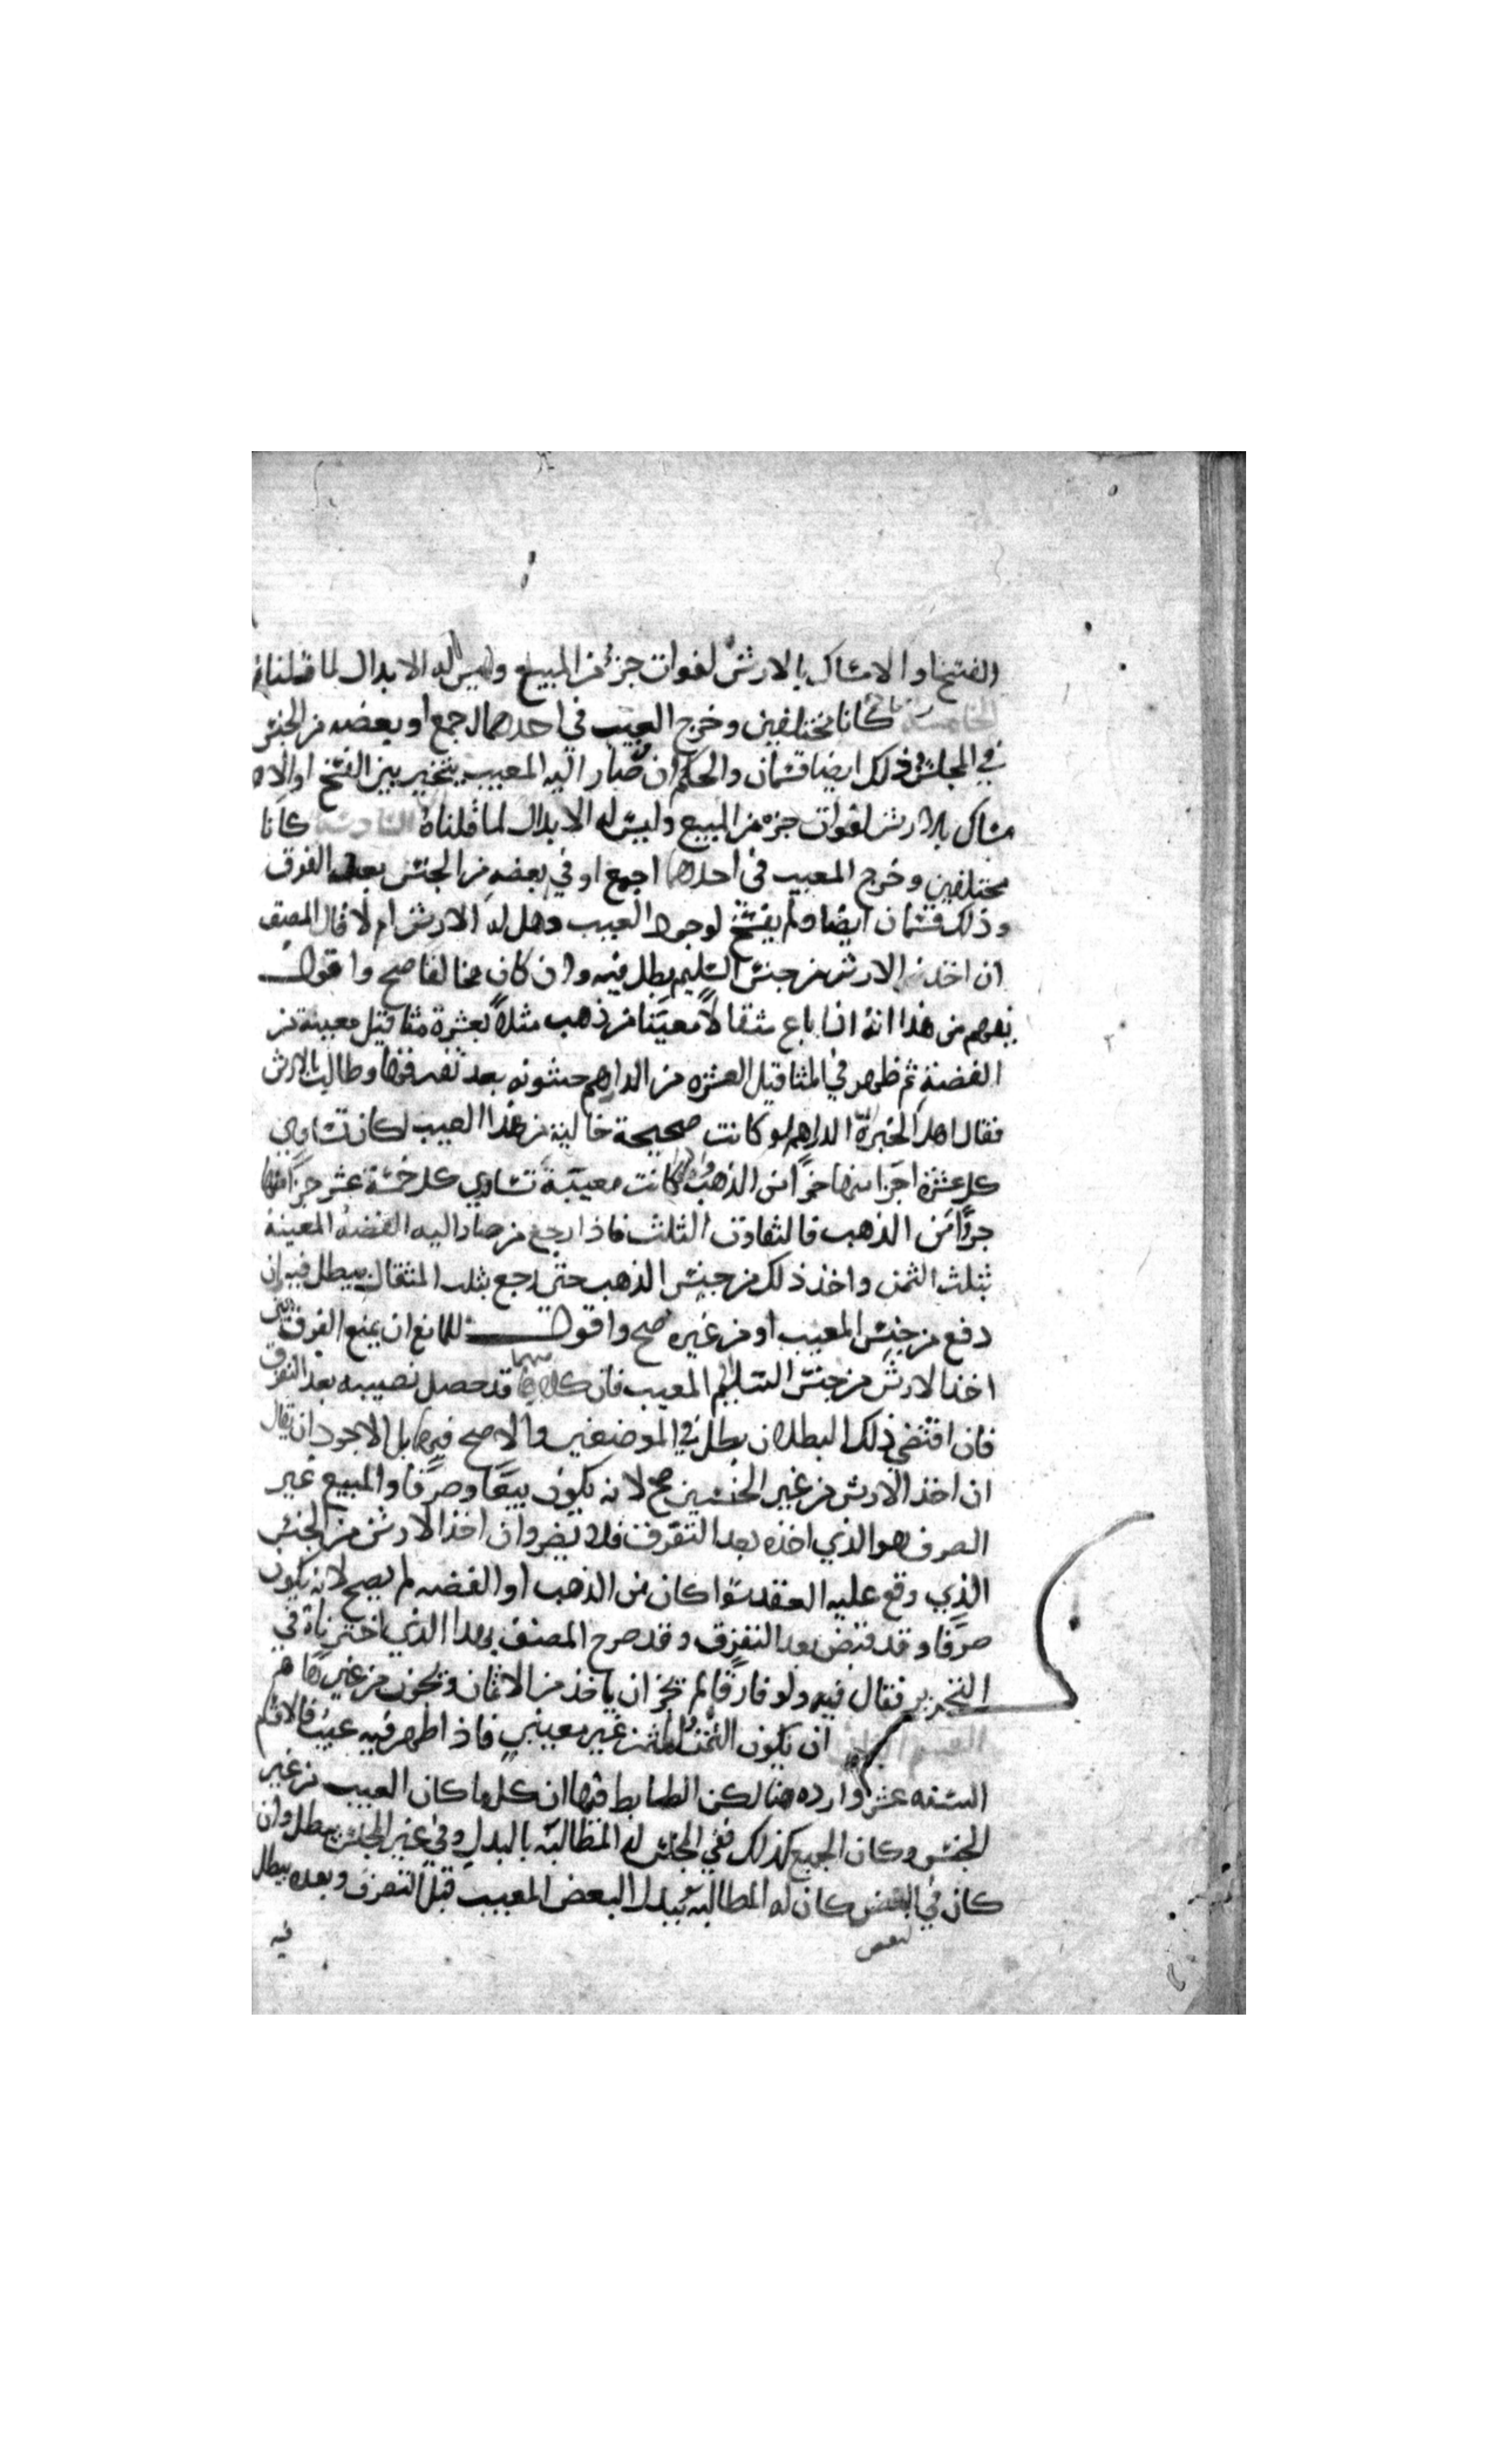 الفسخ او الامساك بالارش لفوات جزء من المبيع وليس له الابدال لما قلناه
الخامسة كانا مختلفين وخرج العيب في احدهما اجمع او بعضه من الجنس
في المجلس وذلك ايضا قسمان والحكم ان صار اليه المعيب يتخير بين الفسخ او الام
ساك بالارش لفوات جزء من المبيع وليس له الابدال لما قلناه السادسة كانا
مختلفين وخرج المعيب في احدهما اجمع او في بعضه من الجنس بعد التفرق
وذلك قسمان ايضا ولم يفسخ لوجود العيب وهل له الارش ام لا قال المصنف
ان اخذ الارش من جنس السليم بطل فيه وان كان مخالفا صح واقول
يفهم من هذا انه اذا باع مثقالا معينا من ذهب مثلا بعشرة مثاقيل معينة من
الفضة ثم ظهر في المثاقيل العشرة من الدراهم خشونه بعد تفرقها وطالب بالارش
فقال اهل الخبرة الدراهم لو كانت صحيحة خالية من هذا العيب لكان تساوي
كل عشرة اجزا منها جزا من الذهب ولما كانت معيبة تساوي كل خمسة عشر جزا منها
جزا من الذهب فالتفاوت الثلث فاذا رجع من صار اليه الفضة المعينة
بثلث الثمن واخذ ذلك من جنس الذهب حتى رجع بثلث المثقال يبطل فيه وان
دفع من جنس المعيب او من غيره صح واقول للمانع ان يمنع الفرق بين
اخذ الارش من جنس السليم او المعيب فان كلا منهما قد حصل نصيبه بعد التفرق
فان اقتضى ذلك البطلان بطل في الموضعين والا صح فيهما بل الاجود ان يقال
ان اخذ الارش من غير الجنسين صح لانه يكون بيعا وصرفا والمبيع غير
الصرف هو الذي اخذه بعد التفرق فلا يضر وان اخذ الارش من الجنس
الذي وقع عليه العقد سوا كان من الذهب او الفضه لم يصح لانه يكون
صرفا وقد قبض بعد التفرق وقد صرح المصنف بهذا الذي اخترناه في
التحرير فقال فيه ولو فارقا لم يجز ان ياخذ من الاثمان ويجوز من غيرها
القسم الثاني ان يكون الثمن والمثمن غير معينين فاذا ظهر فيه عيب فالاقسام
السته عشر وارده هنا لكن الضابط فيها ان كلما كان العيب من غير
الجنس وكان الجميع كذلك ففي المجلس له المطالبة بالبدل وفي غير المجلس يبطل وان
كان في البعض كان له المطالبه ببدل البعض المعيب قبل التفرق وبعده يبطل
لبعض
فيه